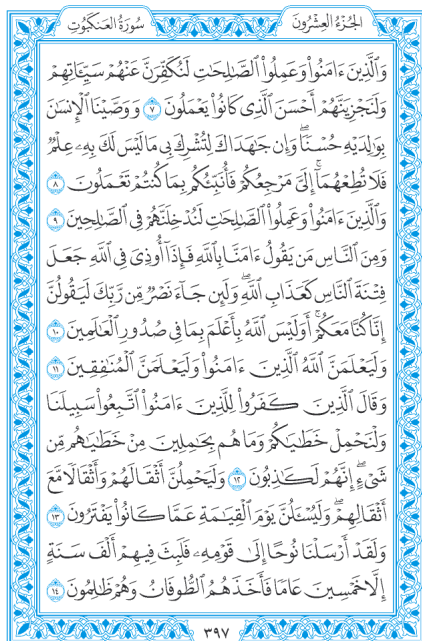 سُورَةُ العَنكَبُوتِ الجُزْءُ العِشْرُونَ
وَٱلَّذِينَ ءَامَنُوا۟ وَعَمِلُوا۟ ٱلصَّٰلِحَٰتِ لَنُكَفِّرَنَّ عَنْهُمْ سَيِّـَٔاتِهِمْ
وَلَنَجْزِيَنَّهُمْ أَحْسَنَ ٱلَّذِى كَانُوا۟ يَعْمَلُونَ ٧ وَوَصَّيْنَا ٱلْإِنسَٰنَ
بِوَٰلِدَيْهِ حُسْنًا ۖ وَإِن جَٰهَدَاكَ لِتُشْرِكَ بِى مَا لَيْسَ لَكَ بِهِۦ عِلْمٌ
فَلَا تُطِعْهُمَآ ۚ إِلَىَّ مَرْجِعُكُمْ فَأُنَبِّئُكُم بِمَا كُنتُمْ تَعْمَلُونَ ٨
وَٱلَّذِينَ ءَامَنُوا۟ وَعَمِلُوا۟ ٱلصَّٰلِحَٰتِ لَنُدْخِلَنَّهُمْ فِى ٱلصَّٰلِحِينَ ٩
وَمِنَ ٱلنَّاسِ مَن يَقُولُ ءَامَنَّا بِٱللَّهِ فَإِذَآ أُوذِىَ فِى ٱللَّهِ جَعَلَ
فِتْنَةَ ٱلنَّاسِ كَعَذَابِ ٱللَّهِ ۖ وَلَئِن جَآءَ نَصْرٌ مِّن رَّبِّكَ لَيَقُولُنَّ
إِنَّا كُنَّا مَعَكُمْ ۚ أَوَلَيْسَ ٱللَّهُ بِأَعْلَمَ بِمَا فِى صُدُورِ ٱلْعَٰلَمِينَ ١٠
وَلَيَعْلَمَنَّ ٱللَّهُ ٱلَّذِينَ ءَامَنُوا۟ وَلَيَعْلَمَنَّ ٱلْمُنَٰفِقِينَ ١١
وَقَالَ ٱلَّذِينَ كَفَرُوا۟ لِلَّذِينَ ءَامَنُوا۟ ٱتَّبِعُوا۟ سَبِيلَنَا
وَلْنَحْمِلْ خَطَٰيَٰكُمْ وَمَا هُم بِحَٰمِلِينَ مِنْ خَطَٰيَٰهُم مِّن
شَىْءٍ ۖ إِنَّهُمْ لَكَٰذِبُونَ ١٢ وَلَيَحْمِلُنَّ أَثْقَالَهُمْ وَأَثْقَالًا مَّعَ
أَثْقَالِهِمْ ۖ وَلَيُسْـَٔلُنَّ يَوْمَ ٱلْقِيَٰمَةِ عَمَّا كَانُوا۟ يَفْتَرُونَ ١٣
وَلَقَدْ أَرْسَلْنَا نُوحًا إِلَىٰ قَوْمِهِۦ فَلَبِثَ فِيهِمْ أَلْفَ سَنَةٍ
إِلَّا خَمْسِينَ عَامًا فَأَخَذَهُمُ ٱلطُّوفَانُ وَهُمْ ظَٰلِمُونَ ١٤
٣٩٧